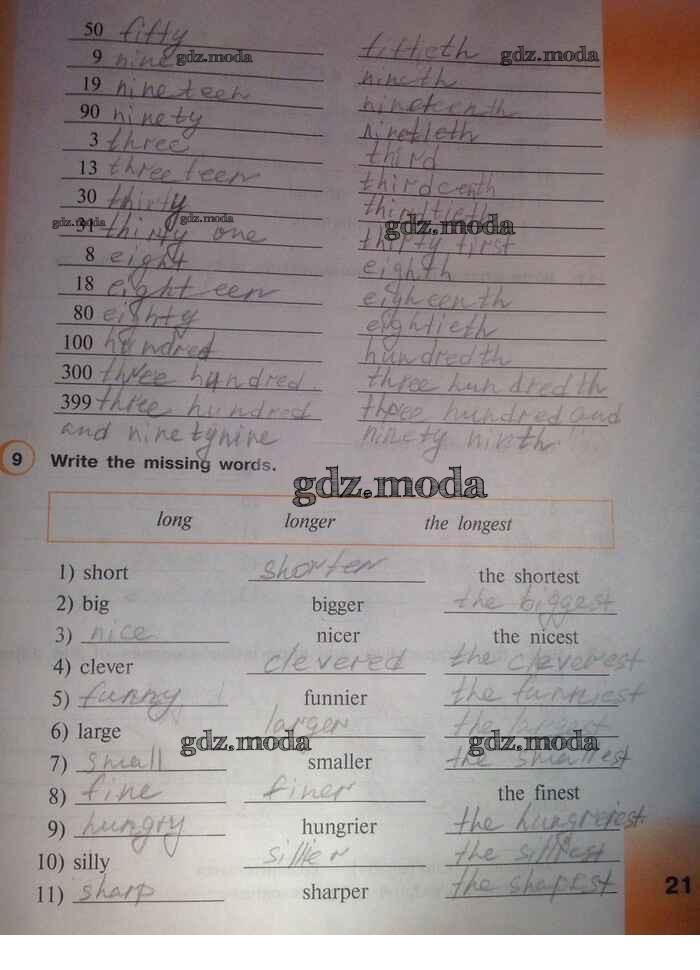 50 fifty fiftieth
9 nine gdz.moda gdz.moda
19 nineteen nineth
90 ninety nineteenth
3 three ninetieth
13 threeteen third
30 thirty thirdeenth
gdz.moda 31 thirty one gdz.moda thirdtieth gdz.moda
8 eight thirty first
18 eighteen eighth
80 eighty eigheenth
100 hundred eightieth
300 three hundred. hundredth
399 three hundred three hundredth
and ninetynine three hundred and
ninety nineth.
9 Write the missing words.
gdz.moda
long longer the longest
1) short shorter the shortest
2) big bigger the biggest
3) nice nicer the nicest
4) clever clevered the cleverest
5) funny funnier the funniest
6) large larger the
7) small gdz.moda smaller gdz.moda the smallest
8) fine finer the finest
9) hungry hungrier the hungrejest
10) silly sillier the silliest
11) sharp sharper the shapest
21